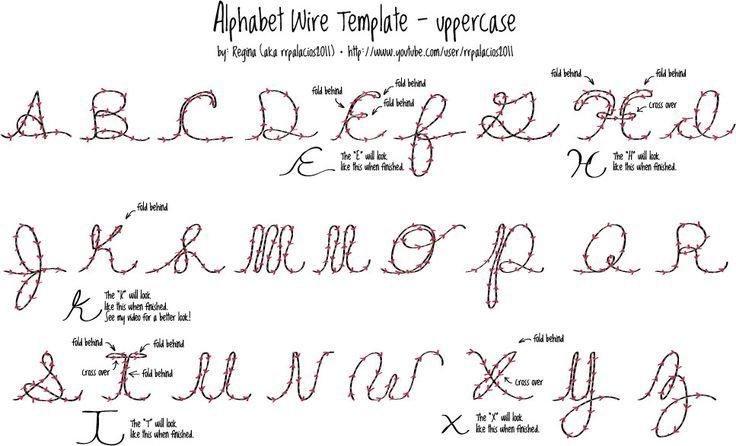 Alphabet Wire Template - uppercase
by: Regina (aka rrpalacios2011) • http://www.youtube.com/user/rrpalacios2011
fold behind
fold behind
fold behind
fold behind
fold behind
cross over
A B C D E F G H I
E
The "E" will look
like this when finished.
H
The "H" will look
like this when finished.
fold behind
J K L M N O P Q R
K
The "K" will look
like this when finished.
See my video for a better look!
fold behind
fold behind
cross over
fold behind
fold behind
cross over
S T U V W X Y Z
T
The "T" will look
like this when finished.
X
The "X" will look
like this when finished.